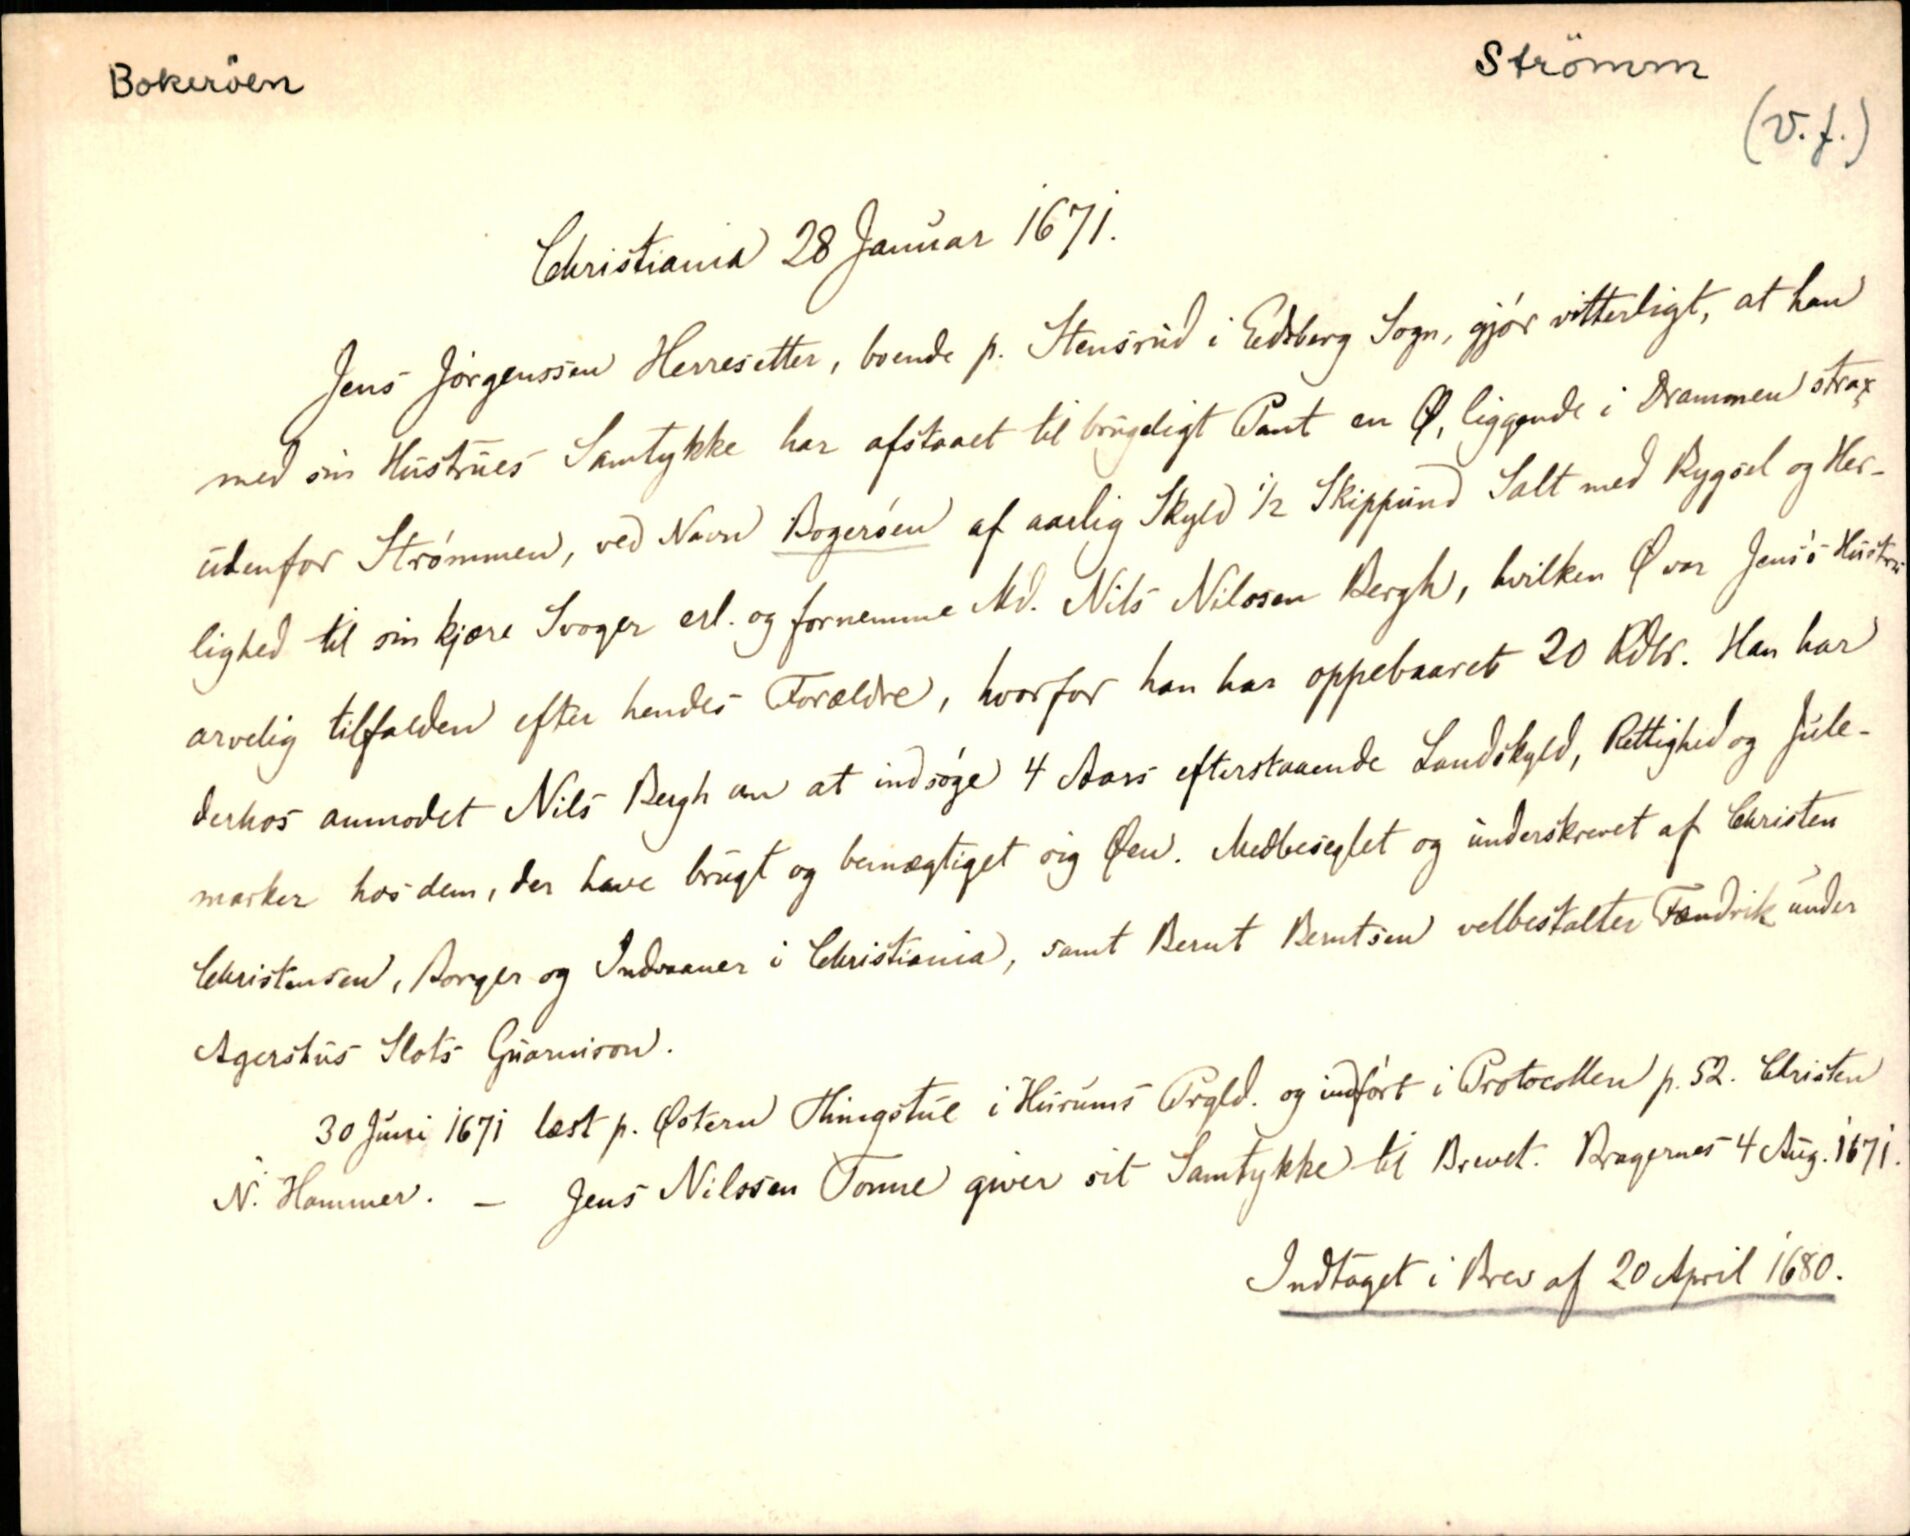 Bokeröen
Strömm
(V. f.)
Christiania 28 Januar 1671.
Jens Jörgenssen Herresetter, boende p. Stensrud i Edsberg Sogn, gjör vitterligt, at han
med sin Hustrues Samtykke har afstaaet til brugeligt Pant en Ø, liggende i Drammen strax
udenfor Strømmen, ved Navn Bogeröen af aarlig Skyld 1/2 Skippund Salt med Bygsel og Her-
lighed til sin kjære Svoger erl. og fornemme Md. Nils Nilssen Bergh, hvilken Ø var Jens's Hustru
arvelig tilfalden efter hendes Forældre, hvorfor han har oppebaaret 20 Rdlr. Han har
derhos anmodet Nils Bergh om at indsöge 4 Aars efterstaaende Landskyld, Rettighed og Jule-
marker hos dem, der have brugt og bemægtiget sig Øen. Medbeseglet og underskrevet af Christen
Christensen, Borger og Indvaaner i Christiania, samt Bernt Berntsen velbestalter Fændrik under
Agershus Slots Guarnison.
30 Juni 1671 læst p. Østern Thingstue i Hurums Prgld. og indfört i Protocollen p. 52. Christen
N. Hammer. — Jens Nilssen Tonne giver sit Samtykke til Brevet. Bragernes 4 Aug. 1671.
Indtaget i Brev af 20 April 1680.